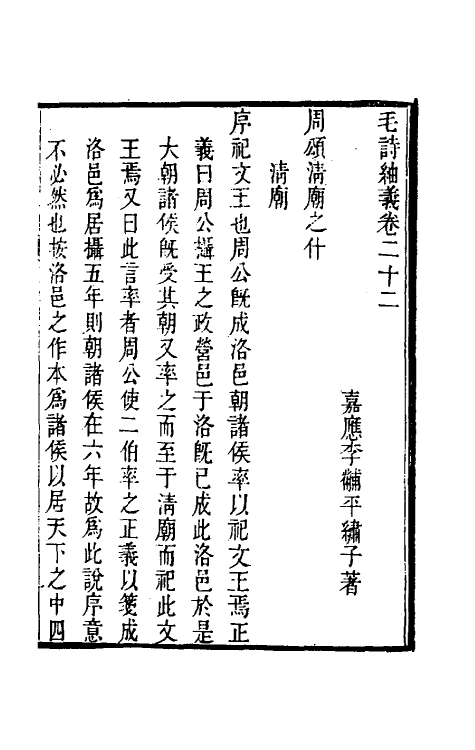 毛詩紬義卷二十二
嘉應李黼平繡子著
周頌淸廟之什
淸廟
序祀文王也周公旣成洛邑朝諸侯率以祀文王焉正
義曰周公攝王之政營邑于洛旣已成此洛邑於是
大朝諸侯旣受其朝又率之而至于淸廟而祀此文
王焉又曰此言率者周公使二伯率之正義以箋成
洛邑爲居攝五年則朝諸侯在六年故爲此說序意
不必然也按洛邑之作本爲諸侯以居天下之中四